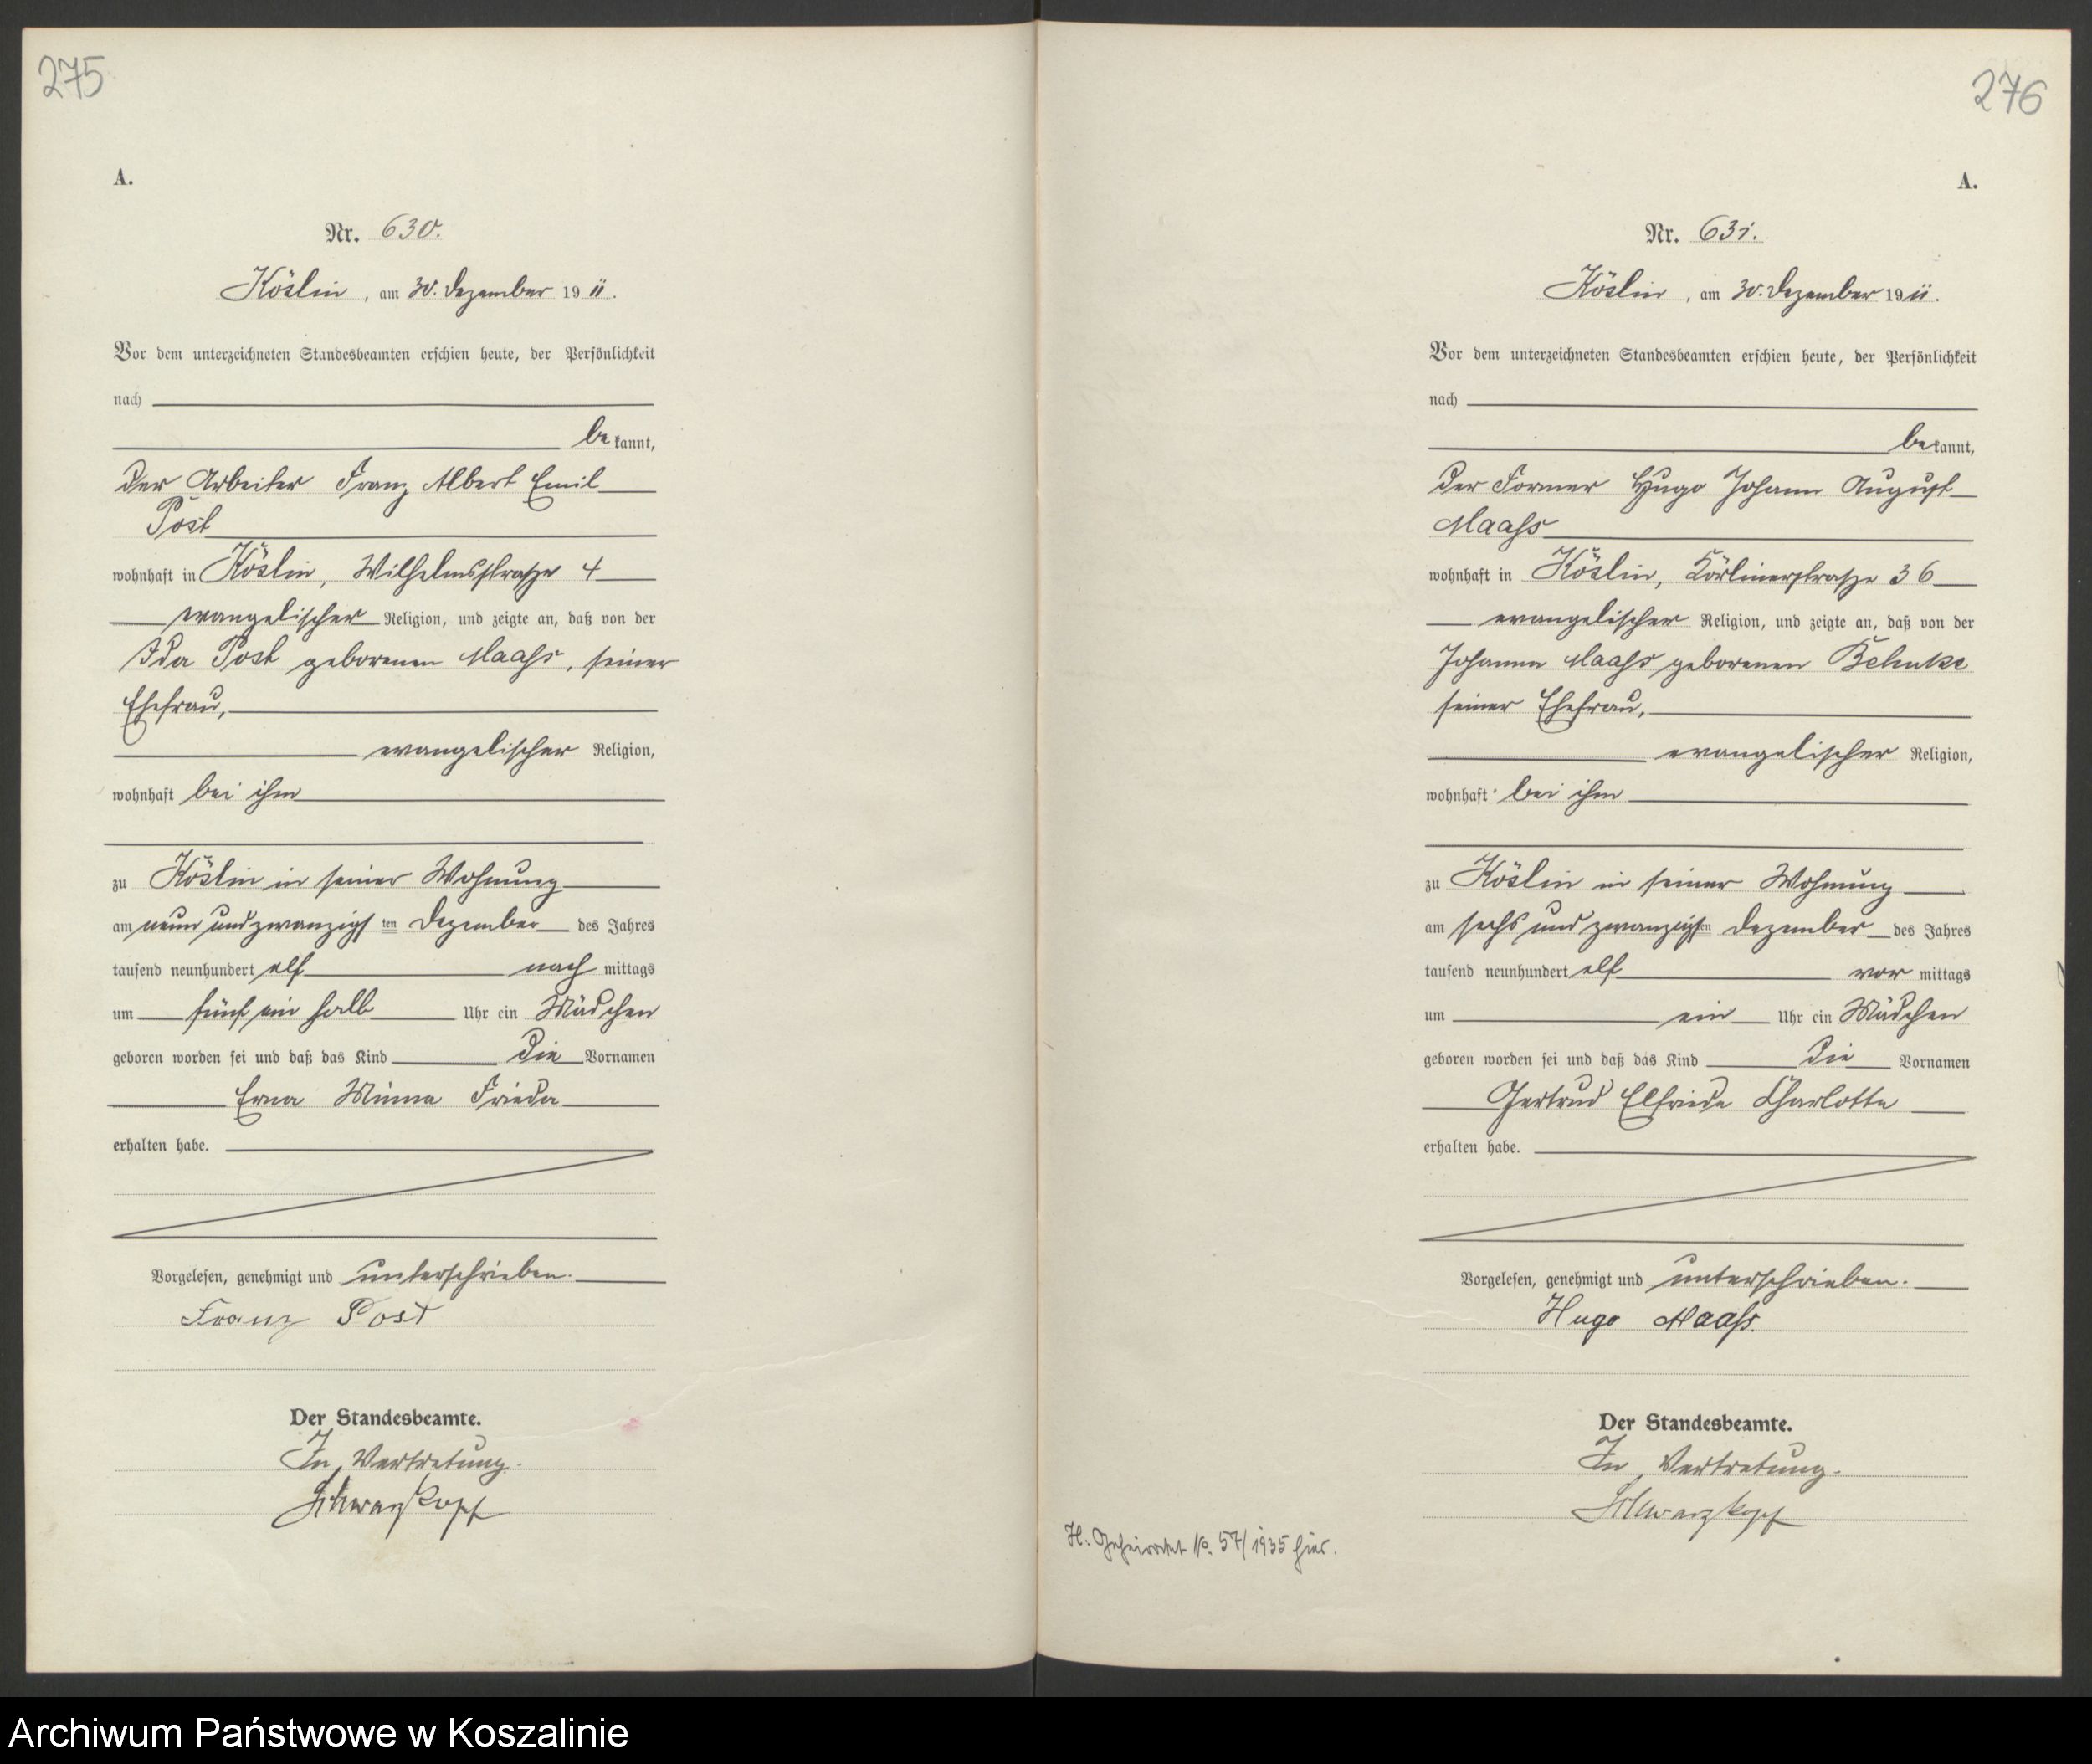 275
A.
Nr. 630.
Köslin, am 30. Dezember 1911.
Vor dem unterzeichneten Standesbeamten erschien heute, der Persönlichkeit
nach
bekannt,
der Arbeiter Franz Albert Emil
Post
wohnhaft in Köslin, Wilhelmsstraße 4
evangelischer Religion, und zeigte an, daß von der
Ida Post geborenen Maaß, seiner
Ehefrau,
evangelischer Religion,
wohnhaft bei ihm
zu Köslin in seiner Wohnung
am neun und zwanzigsten Dezember des Jahres
tausend neunhundert elf nachmittags
um fünf ein halb Uhr ein Mädchen
geboren worden sei und daß das Kind die Vornamen
Erna Minna Frieda
erhalten habe.
Vorgelesen, genehmigt und unterschrieben.
Franz Post
Der Standesbeamte.
In Vertretung.
Schwarzkopf
276
A.
Nr. 631.
Köslin, am 30. Dezember 1911.
Vor dem unterzeichneten Standesbeamten erschien heute, der Persönlichkeit
nach
bekannt,
der Former Hugo Johann August
Maaß
wohnhaft in Köslin, Körlinerstraße 36
evangelischer Religion, und zeigte an, daß von der
Johanna Maaß geborenen Behnke
seiner Ehefrau,
evangelischer Religion,
wohnhaft bei ihm
zu Köslin in seiner Wohnung
am sechs und zwanzigsten Dezember des Jahres
tausend neunhundert elf vormittags
um ein Uhr ein Mädchen
geboren worden sei und daß das Kind die Vornamen
Gertrud Elfriede Charlotte
erhalten habe.
Vorgelesen, genehmigt und unterschrieben.
Hugo Maaß.
Der Standesbeamte.
In Vertretung.
Schwarzkopf
H. Geheiratet No. 57/1935 hier.
Archiwum Państwowe w Koszalinie